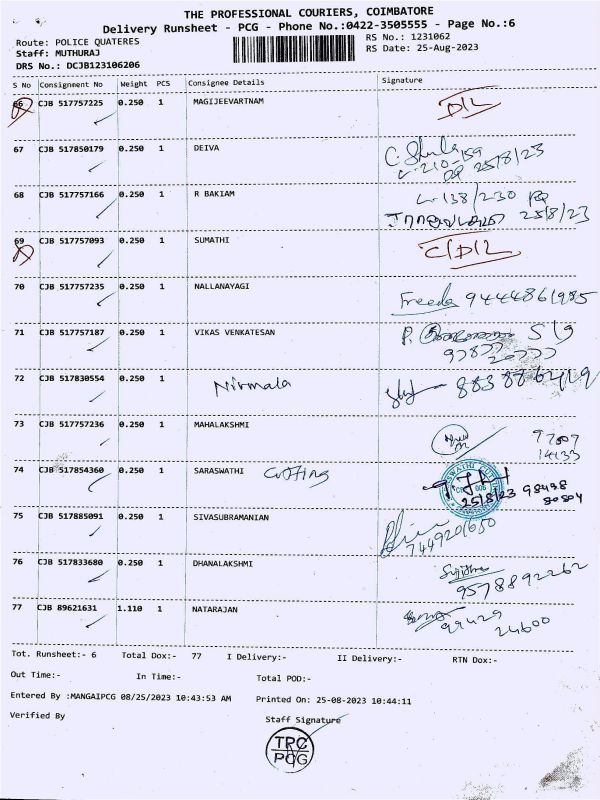 THE PROFESSIONAL COURIERS, COIMBATORE
Delivery Runsheet - PCG - Phone No.:0422-3505555 - Page No.:6
Route: POLICE QUATERES RS No.: 1231062
Staff: MUTHURAJ RS Date: 25-Aug-2023
DRS No.: DCJB123106206
S No Consignment No Weight PCS Consignee Details Signature
66 CJB 517757225 0.250 1 MAGIJEEVARTNAM D/L
67 CJB 517850179 0.250 1 DEIVA
25/8/23
68 CJB 517757166 0.250 1 R BAKIAM
25/8/23
69 CJB 517757093 0.250 1 SUMATHI C/D/L
70 CJB 517757235 0.250 1 NALLANAYAGI Freeda 9444861985
71 CJB 517757187 0.250 1 VIKAS VENKATESAN
72 CJB 517830554 0.250 1 Nirmala
73 CJB 517757236 0.250 1 MAHALAKSHMI
74 CJB 517854360 0.250 1 SARASWATHI Cutting
25/8/23
75 CJB 517885091 0.250 1 SIVASUBRAMANIAN
7449201650
76 CJB 517833680 0.250 1 DHANALAKSHMI
9578892262
77 CJB 89621631 1.110 1 NATARAJAN
99429
24600
Tot. Runsheet:- 6 Total Dox:- 77 I Delivery:- II Delivery:- RTN Dox:-
Out Time:- In Time:- Total POD:-
Entered By :MANGAIPCG 08/25/2023 10:43:53 AM Printed On: 25-08-2023 10:44:11
Verified By Staff Signature
TPC
PCG